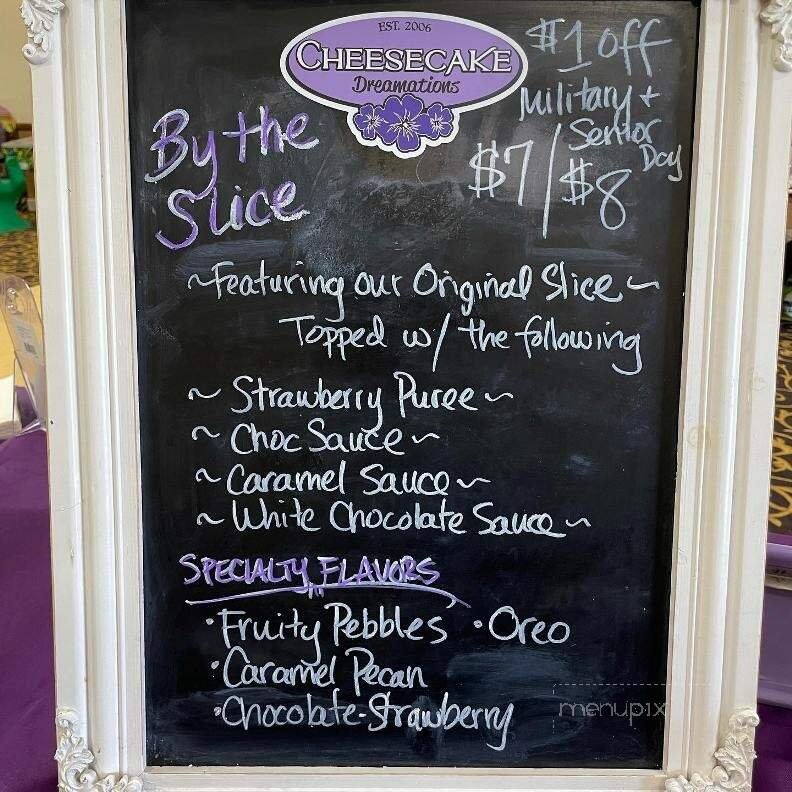 EST. 2006
CHEESECAKE
Dreamations
$1 off
Military +
Senior
Day
$7/$8
By the
Slice
~Featuring our Original Slice~
Topped w/ the following
~ Strawberry Puree ~
~ Choc Sauce ~
~ Caramel Sauce ~
~ White Chocolate Sauce ~
SPECIALTY FLAVORS
•Fruity Pebbles •Oreo
•Caramel Pecan
•Chocolate-Strawberry
menupix